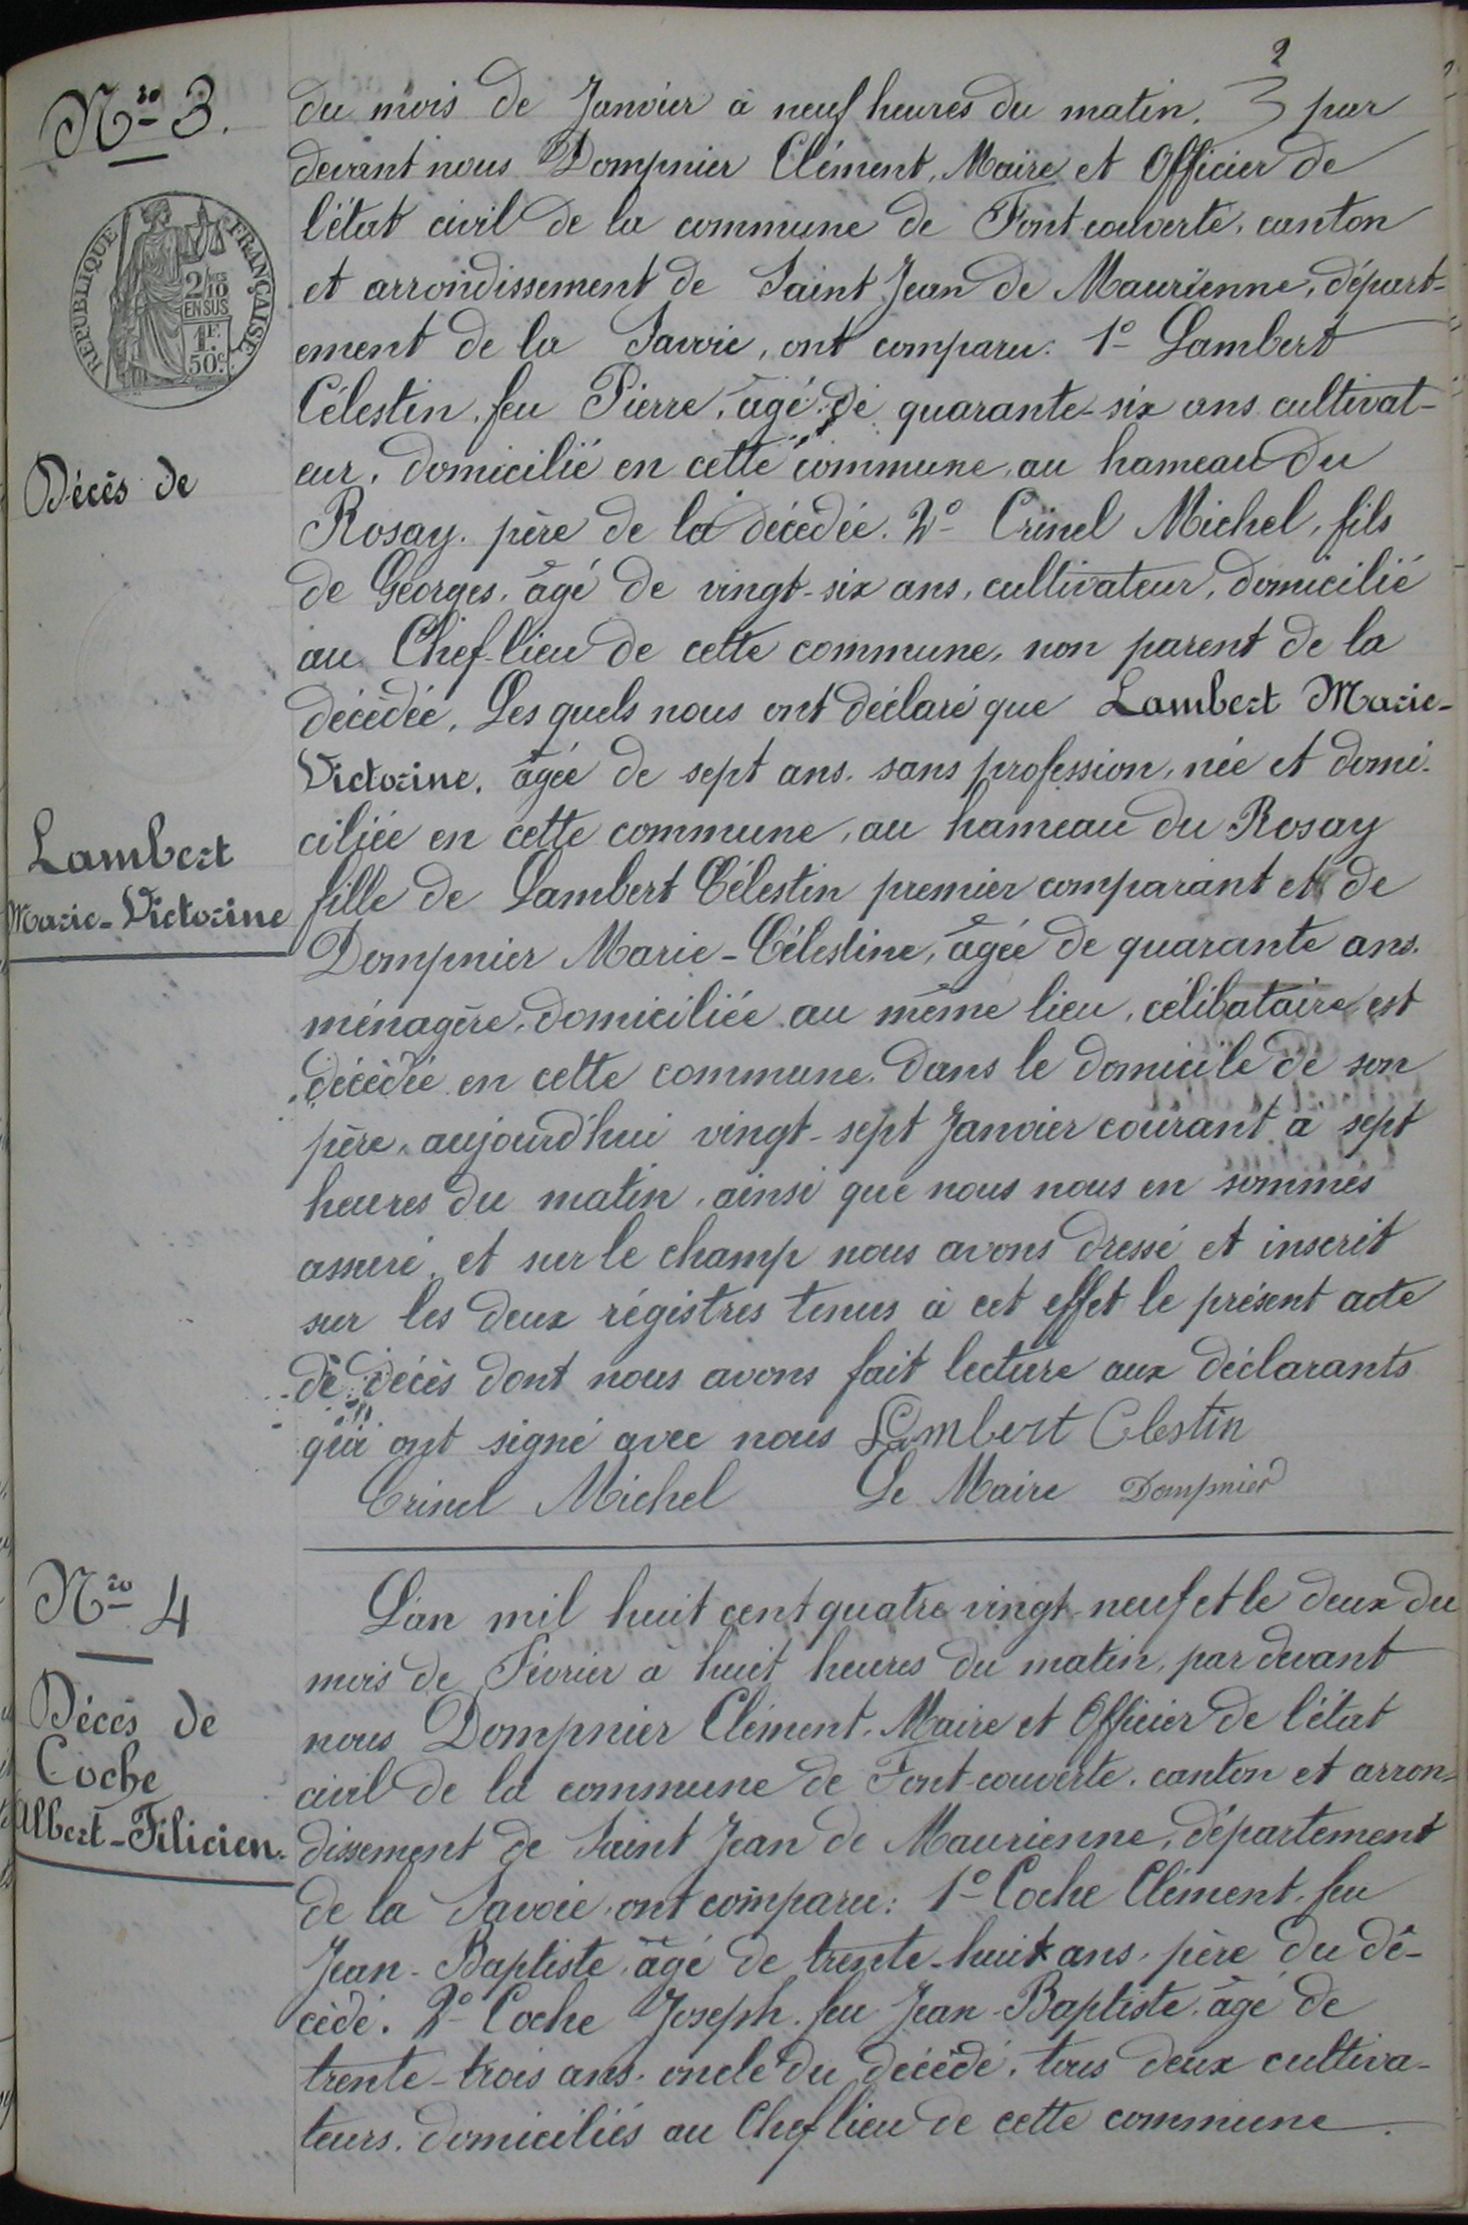 2
Nro 3.
REPUBLIQUE FRANÇAISE
2/10
EN SUS
1F.
50c.
Décès de
Lambert
Marie-Victorine
du mois de Janvier à neuf heures du matin. 3 par
devant nous Dompnier Clément, Maire et Officier de
l'état civil de la commune de Font couverte, canton
et arrondissement de Saint Jean de Maurienne, départ-
ement de la Savoie, ont comparu: 1o Lambert
Célestin, feu Pierre, âgé de quarante-six ans cultivat-
eur, domicilié en cette commune, au hameau du
Rosay. père de la décédée. 2o Crinel Michel, fils
de Georges, âgé de vingt-six ans, cultivateur, domicilié
au Chef-lieu de cette commune, non parent de la
décédée, Les quels nous ont déclaré que Lambert Marie-
Victorine, âgée de sept ans. sans profession, née et domi-
ciliée en cette commune, au hameau du Rosay
fille de Lambert Célestin premier comparant et de
Dompnier Marie-Célestine, âgée de quarante ans.
ménagère, domiciliée au même lieu, célibataire, est
décédée en cette commune. dans le domicile de son
père, aujourd'hui vingt-sept Janvier courant à sept
heures du matin, ainsi que nous nous en sommes
assuré, et sur le champ nous avons dressé et inscrit
sur les deux régistres tenus à cet effet le présent acte
de décès dont nous avons fait lecture aux déclarants
qui ont signé avec nous Lambert Clestin
Crinel Michel Le Maire Dompnier
Nro 4
Décès de
Coche
Albert-Filicien.
L'an mil huit cent quatre vingt-neuf et le deux du
mois de Février à huit heures du matin, par devant
nous Dompnier Clément. Maire et Officier de l'état
civil de la commune de Font-couverte. canton et arron-
dissement de Saint Jean de Maurienne, département
de la Savoie, ont comparu: 1o Coche Clément, feu
Jean-Baptiste, âgé de trente-huit ans, père du dé-
cédé. 2o Coche Joseph. feu Jean-Baptiste. âgé de
trente-trois ans. oncle du décédé. tous deux cultiva-
teurs. domiciliés au Chef lieu de cette commune.